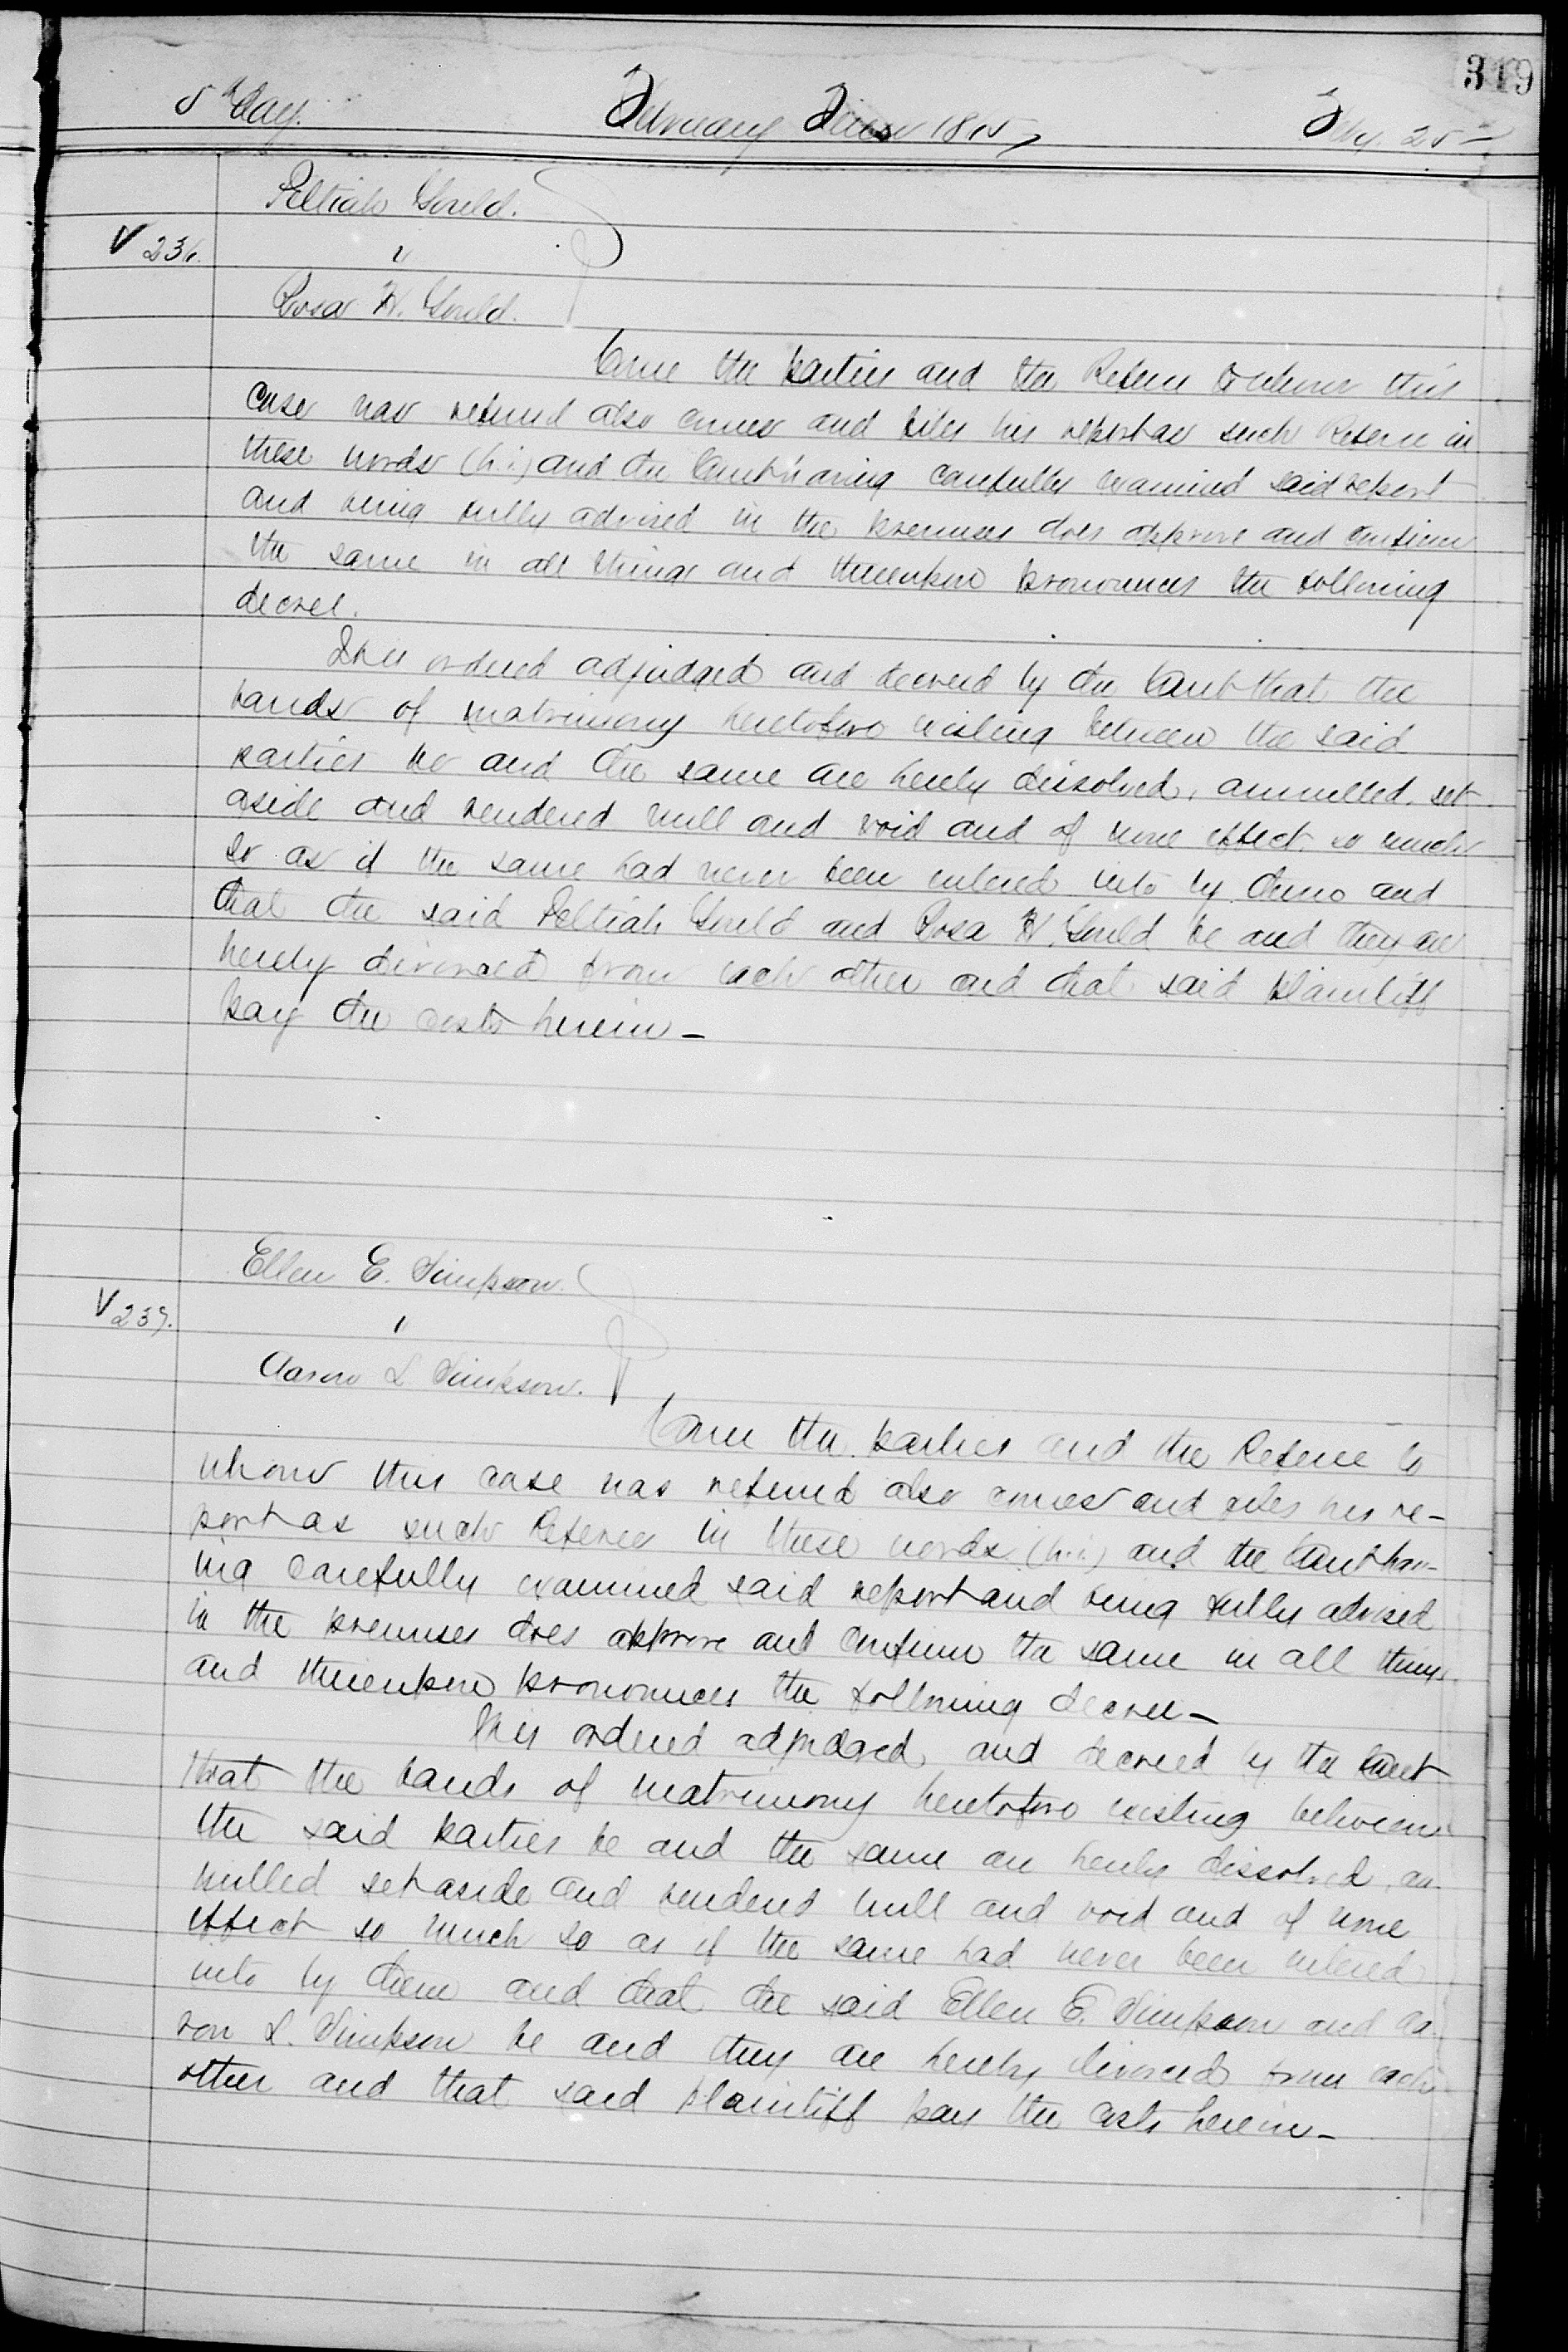 319
8th Day. February Term 1875, Feby. 25th
Peltiah Gould.
V 236. "
Rosa H. Gould.
Come the parties and the Referee to whom this
case was referred also comes and files his report as such Referee in
these words (h.i.) and the Court having carefully examined said report
and being fully advised in the premises does approve and confirm
the same in all things and thereupon pronounces the following
decree.
It is ordered adjudged and decreed by the Court that the
bands of matrimony heretofore existing between the said
parties be and the same are hereby dissolved, annulled, set
aside and rendered null and void and of none effect, so much
so as if the same had never been entered into by them and
that the said Peltiah Gould and Rosa H. Gould be and they are
hereby divorced from each other and that said plaintiff
pay the costs herein –
Ellen E. Simpson.
V 237. "
Aaron L Simpson.
Come the parties and the Referee to
whom this case was referred also comes and files his re-
port as such Referee in these words (h.i.) and the Court hav-
ing carefully examined said report and being fully advised
in the premises does approve and confirm the same in all things
and thereupon pronounces the following decree –
It is ordered adjudged and decreed by the Court
that the bands of matrimony heretofore existing between
the said parties be and the same are hereby dissolved, an-
nulled set aside and rendered null and void and of none
effect so much so as if the same had never been entered
into by them and that the said Ellen E. Simpson and Aa-
ron L. Simpson be and they are hereby divorced from each
other and that said plaintiff pay the costs herein –